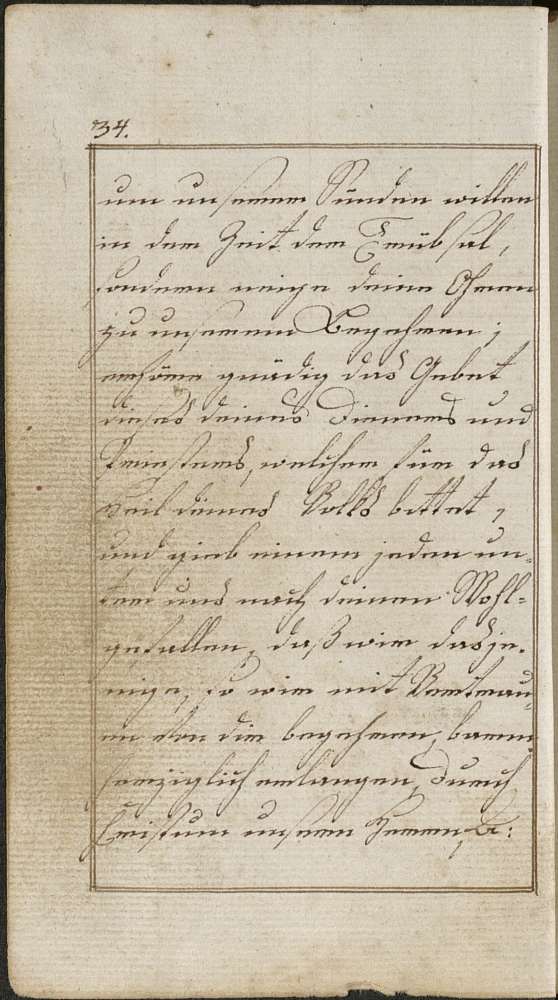 34.
um unserer Sünden willen
in der Zeit der Trübsal,
sondern neige deine Ohren
zu unserem Begehren;
erhöre gnädig das Gebet
dieses deines Dieners und
Priesters, welcher für das
Heil deines Volks bittet,
und gieb einem jeden un-
ter uns nach deinen Wohl-
gefallen, daß wir dasje-
nige, so wir mit Vertrau-
en von dir begehren, barm
herziglich erlangen, durch
Christum unsern Herrn,